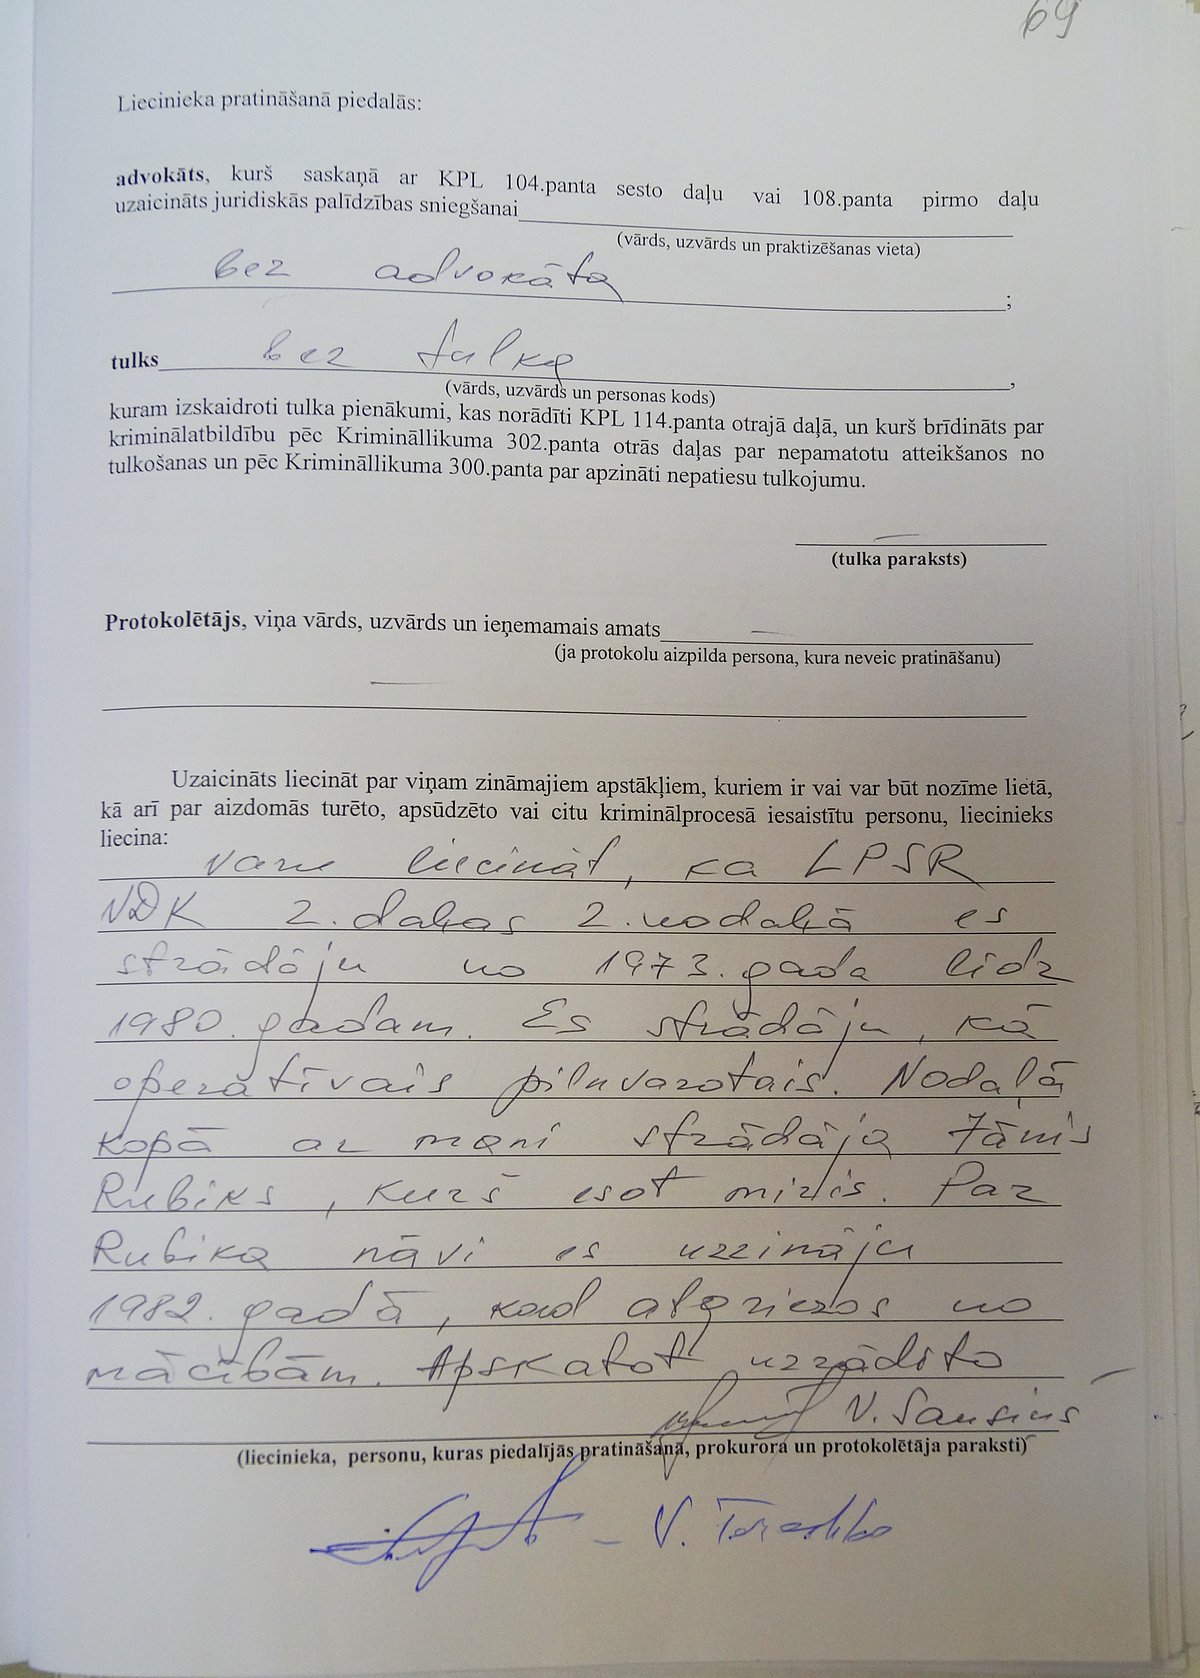 69
Liecinieka pratināšanā piedalās:
advokāts, kurš saskaņā ar KPL 104.panta sesto daļu vai 108.panta pirmo daļu
uzaicināts juridiskās palīdzības sniegšanai
(vārds, uzvārds un praktizēšanas vieta)
bez advokāta
;
tulks bez tulka ,
(vārds, uzvārds un personas kods)
kuram izskaidroti tulka pienākumi, kas norādīti KPL 114.panta otrajā daļā, un kurš brīdināts par
kriminālatbildību pēc Krimināllikuma 302.panta otrās daļas par nepamatotu atteikšanos no
tulkošanas un pēc Krimināllikuma 300.panta par apzināti nepatiesu tulkojumu.
(tulka paraksts)
Protokolētājs, viņa vārds, uzvārds un ieņemamais amats
(ja protokolu aizpilda persona, kura neveic pratināšanu)
Uzaicināts liecināt par viņam zināmajiem apstākļiem, kuriem ir vai var būt nozīme lietā,
kā arī par aizdomās turēto, apsūdzēto vai citu kriminālprocesā iesaistītu personu, liecinieks
liecina:
varu liecināt, ka LPSR
VDK 2. daļas 2. nodaļā es
strādāju no 1973. gada līdz
1980. gadam. Es strādāju, kā
operatīvais pilnvarotais. Nodaļā
kopā ar mani strādāja Jānis
Rubiks, kurš esot miris. Par
Rubika nāvi es uzzināju
1982. gadā, kad atgriezos no
mācībām. Apskatot uzrādīto
V. Sausiņš
(liecinieka, personu, kuras piedalījās pratināšanā, prokurora un protokolētāja paraksti)
– V.